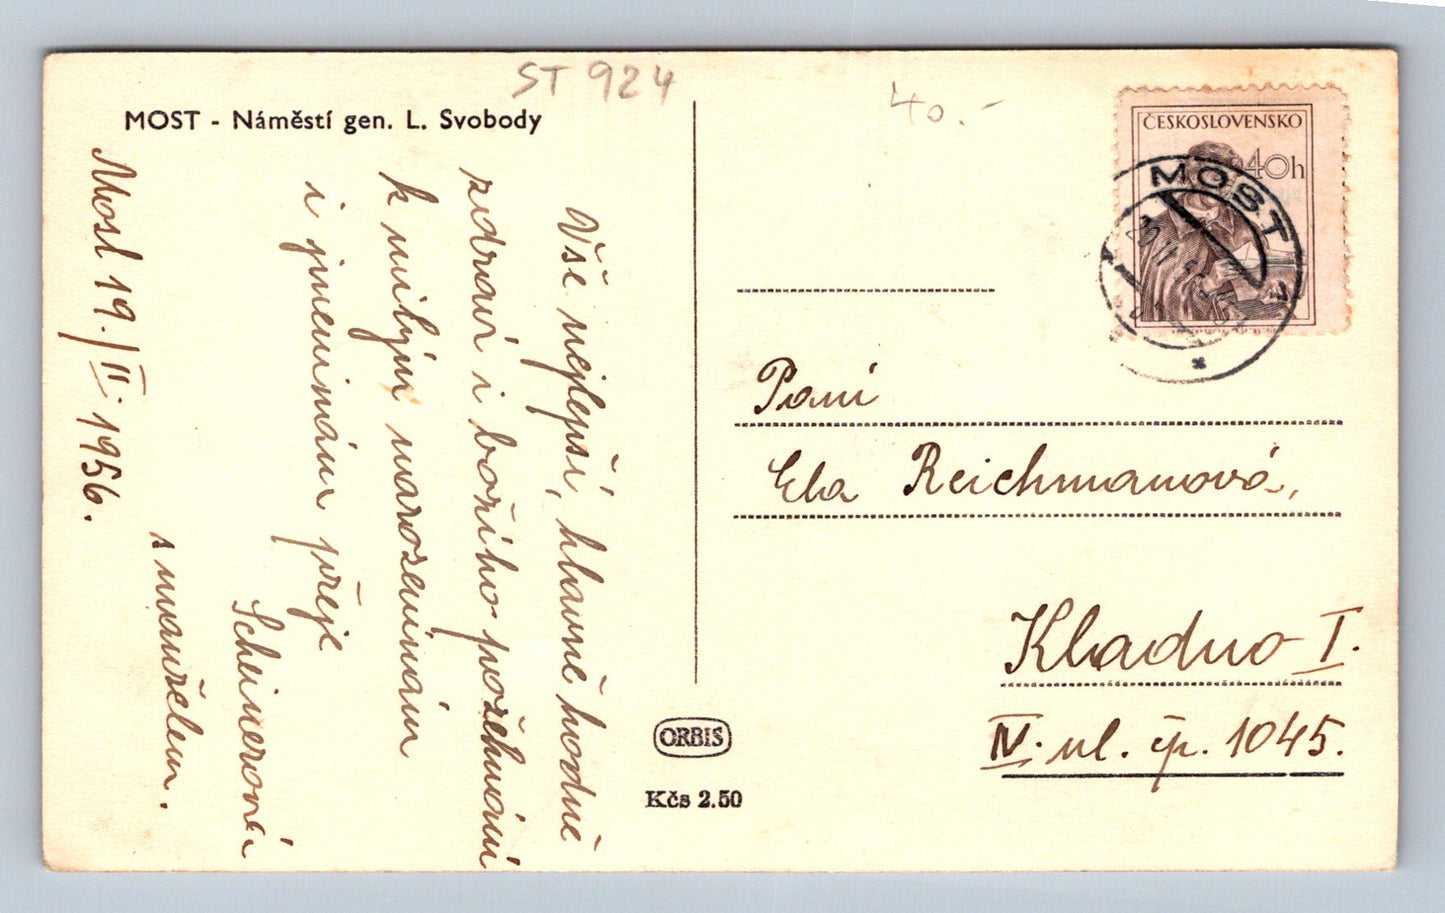 ST 924
40.-
MOST - Náměstí gen. L. Svobody
ČESKOSLOVENSKO
40h
MOST
Most 19./II. 1956.
Vše nejlepší, hlavně hodně
zdraví i božího požehnání
k milým narozeninám
i jmeninám přeje
Scheinerová
s manželem.
Paní
Ela Reichmanová,
Kladno I.
IV. ul. čp. 1045.
ORBIS
Kčs 2.50